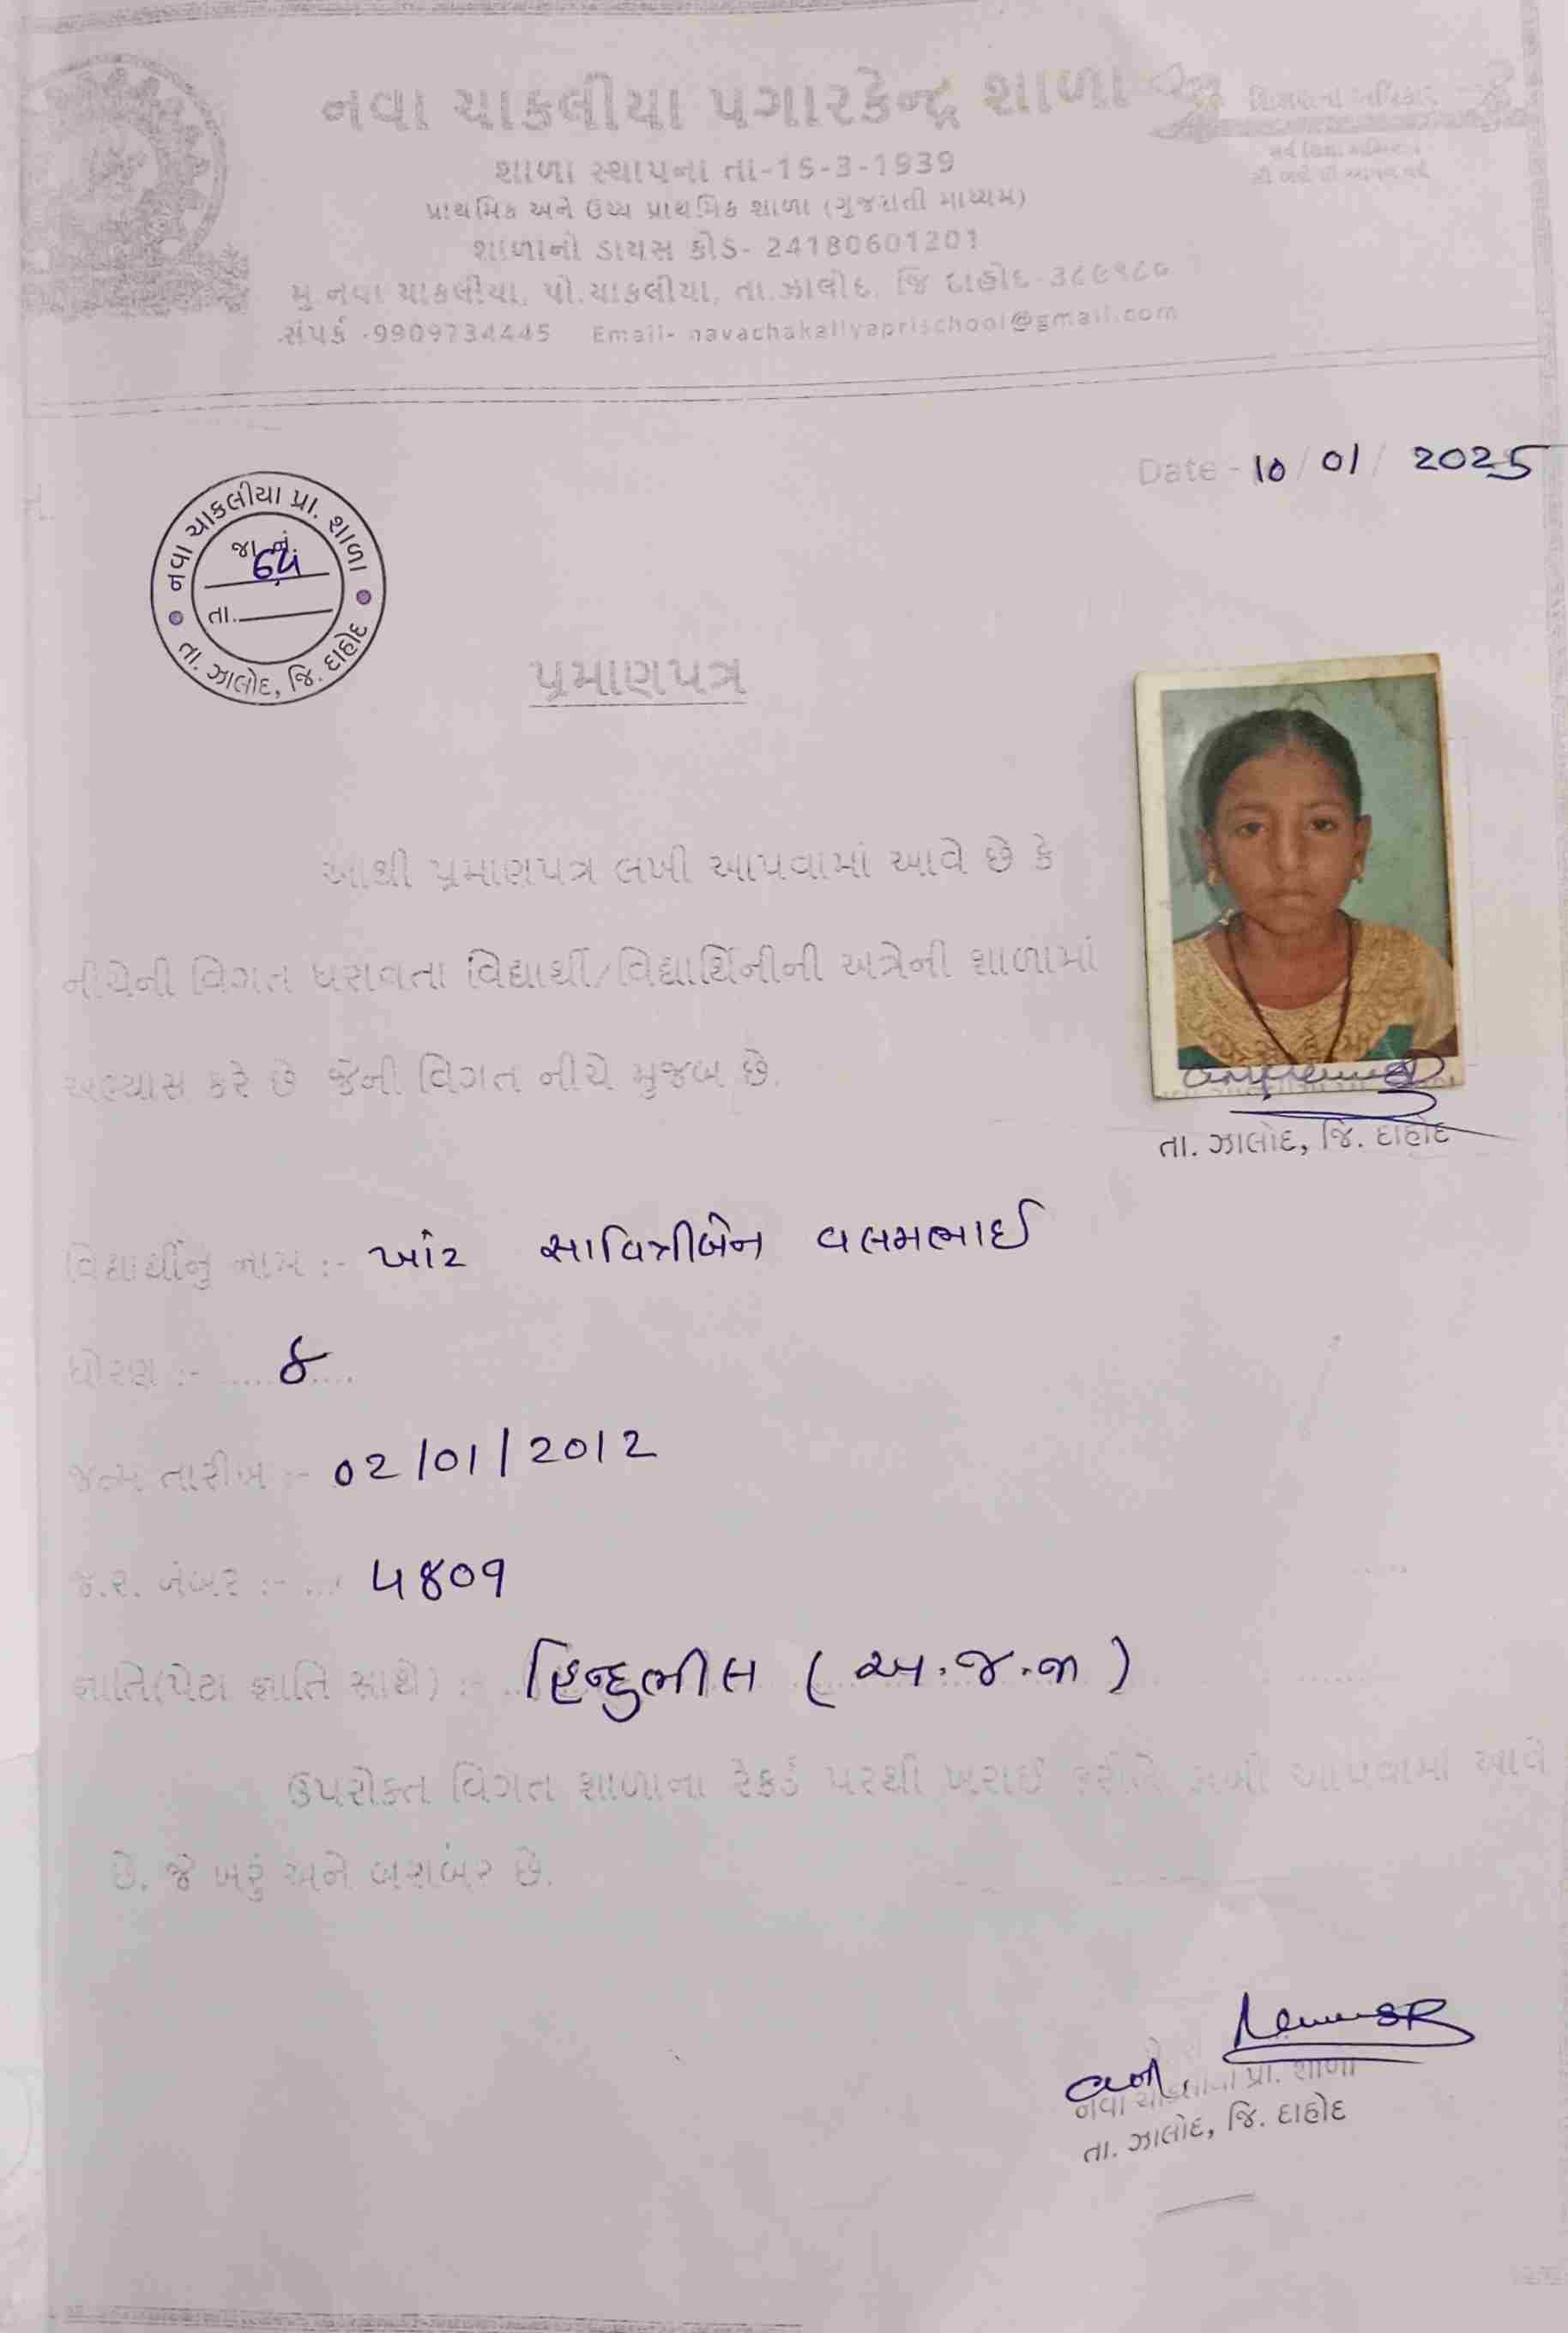 નવા ચાકલીયા પગારકેન્દ્ર શાળા
શાળા સ્થાપના તા-15-3-1939
પ્રાથમિક અને ઉચ્ચ પ્રાથમિક શાળા (ગુજરાતી માધ્યમ)
શાળાનો ડાયસ કોડ- 24180601201
મુ.નવા ચાકલીયા, પો.ચાકલીયા, તા.ઝાલોદ, જિ દાહોદ-૩૮૯૧૮૦
સંપર્ક -9909734445 Email- navachakaliyaprischool@gmail.com
Date - 10/01/2025
નવા ચાકલીયા પ્રા. શાળા
જા.નં.
તા.
તા. ઝાલોદ, જિ. દાહોદ
પ્રમાણપત્ર
આથી પ્રમાણપત્ર લખી આપવામાં આવે છે કે
નીચેની વિગત ધરાવતા વિદ્યાર્થી/વિદ્યાર્થિનીની અત્રેની શાળામાં
અભ્યાસ કરે છે જેની વિગત નીચે મુજબ છે.
તા. ઝાલોદ, જિ. દાહોદ
વિદ્યાર્થીનું નામ :- ખાંટ સાવિત્રીબેન વલમભાઈ
ધોરણ :- ....૪....
જન્મ તારીખ :- 02/01/2012
જ.ર. નંબર :- ... ૫૪૦૧
જ્ઞાતિ(પેટા જ્ઞાતિ સાથે) :- હિન્દુભીલ (અ.જ.જા)
ઉપરોક્ત વિગત શાળાના રેકર્ડ પરથી ખરાઈ કરીને લખી આપવામાં આવે
છે. જે ખરું અને બરાબર છે.
નવા ચાકલીયા પ્રા. શાળા
તા. ઝાલોદ, જિ. દાહોદ